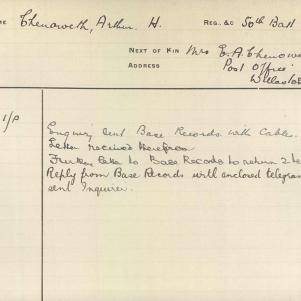 ME Chenoweth, Arthur. H. REG. &C 50th Batt
NEXT OF KIN Mrs E. A. Chenowe
ADDRESS Post Office
Willasto
1/P
Enquiry sent Base Records with Cable.
Letter received therefrom
Further letter to Base Records to return 2 le
Reply from Base Records with enclosed telegram
sent Inquirer.